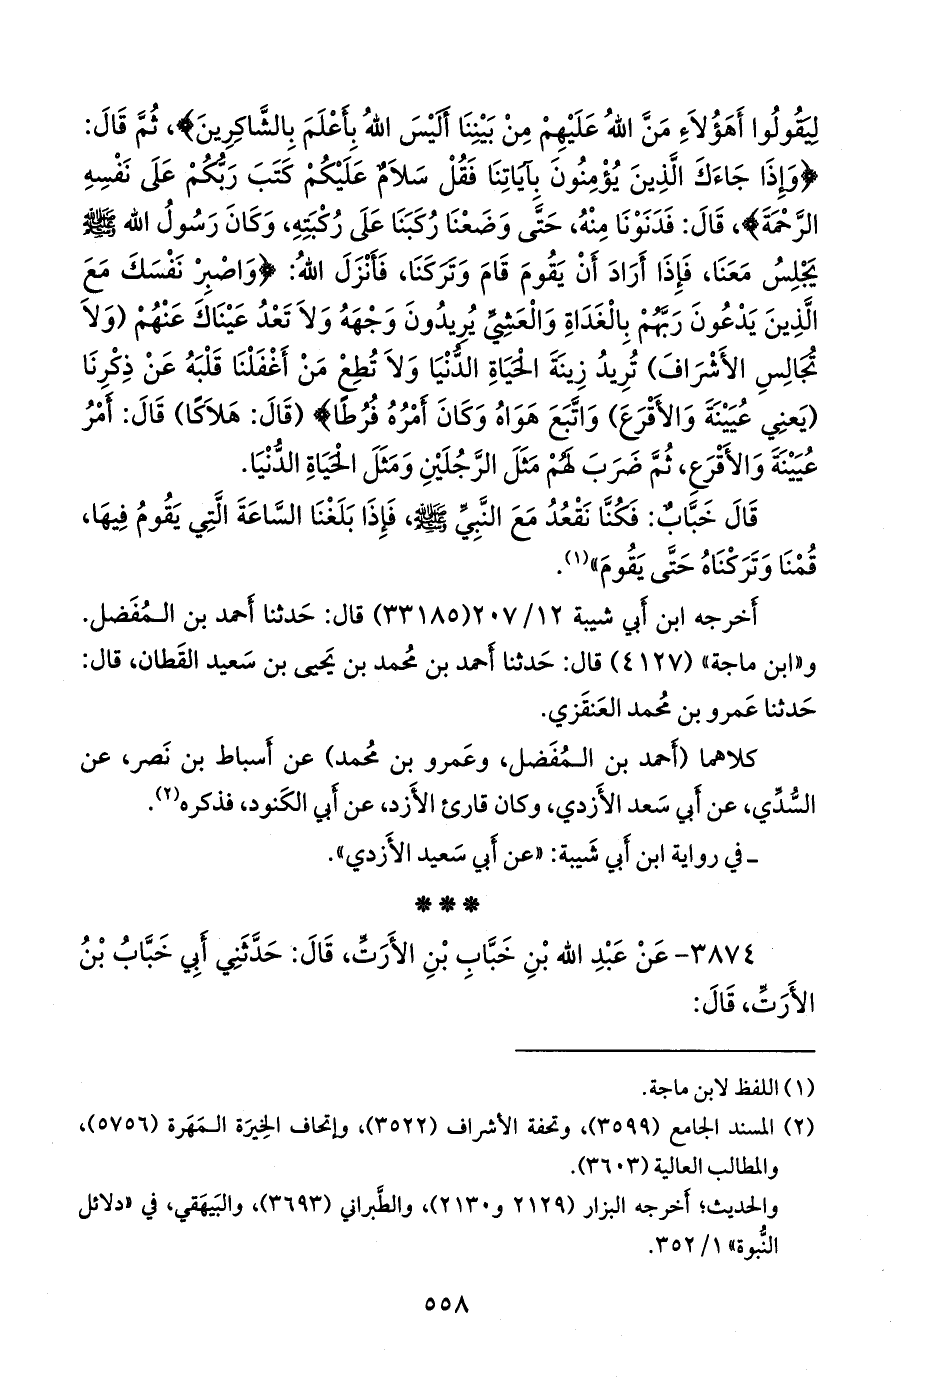 لِيَقُولُوا أَهَؤُلاَءِ مَنَّ اللهُ عَلَيْهِمْ مِنْ بَيْنِنَا أَلَيْسَ اللهُ بِأَعْلَمَ بِالشَّاكِرِينَ﴾، ثُمَّ قَالَ:
﴿وَإِذَا جَاءَكَ الَّذِينَ يُؤْمِنُونَ بِآيَاتِنَا فَقُلْ سَلاَمٌ عَلَيْكُمْ كَتَبَ رَبُّكُمْ عَلَى نَفْسِهِ
الرَّحْمَةَ﴾، قَالَ: فَدَنَوْنَا مِنْهُ، حَتَّى وَضَعْنَا رُكَبَنَا عَلَى رُكْبَتِهِ، وَكَانَ رَسُولُ الله ﷺ
يَجْلِسُ مَعَنَا، فَإِذَا أَرَادَ أَنْ يَقُومَ قَامَ وَتَرَكَنَا، فَأَنْزَلَ اللهُ: ﴿وَاصْبِرْ نَفْسَكَ مَعَ
الَّذِينَ يَدْعُونَ رَبَّهُمْ بِالْغَدَاةِ وَالْعَشِيِّ يُرِيدُونَ وَجْهَهُ وَلاَ تَعْدُ عَيْنَاكَ عَنْهُمْ (وَلاَ
تُجَالِسِ الأَشْرَافَ) تُرِيدُ زِينَةَ الْحَيَاةِ الدُّنْيَا وَلاَ تُطِعْ مَنْ أَغْفَلْنَا قَلْبَهُ عَنْ ذِكْرِنَا
(يَعْنِي عُيَيْنَةَ وَالأَقْرَعَ) وَاتَّبَعَ هَوَاهُ وَكَانَ أَمْرُهُ فُرُطًا﴾ (قَالَ: هَلاَكًا) قَالَ: أَمْرُ
عُيَيْنَةَ وَالأَقْرَعِ، ثُمَّ ضَرَبَ لَهُمْ مَثَلَ الرَّجُلَيْنِ وَمَثَلَ الْحَيَاةِ الدُّنْيَا.
قَالَ خَبَّابٌ: فَكُنَّا نَقْعُدُ مَعَ النَّبِيِّ ﷺ، فَإِذَا بَلَغْنَا السَّاعَةَ الَّتِي يَقُومُ فِيهَا،
قُمْنَا وَتَرَكْنَاهُ حَتَّى يَقُومَ»(١).
أخرجه ابن أبي شيبة ١٢/ ٢٠٧(٣٣١٨٥) قال: حَدثنا أحمد بن الـمُفَضل.
و«ابن ماجة» (٤١٢٧) قال: حَدثنا أحمد بن مُحمد بن يَحيى بن سَعيد القَطان، قال:
حَدثنا عَمرو بن مُحمد العَنقَزي.
كلاهما (أحمد بن الـمُفَضل، وعَمرو بن مُحمد) عن أسباط بن نَصر، عن
السُّدِّي، عن أبي سَعد الأزدي، وكان قارئ الأزد، عن أبي الكَنود، فذكره(٢).
ـ في رواية ابن أبي شَيبة: «عن أبي سَعيد الأزدي».
***
٣٨٧٤- عَنْ عَبْدِ الله بْنِ خَبَّابِ بْنِ الأَرَتِّ، قَالَ: حَدَّثَنِي أَبِي خَبَّابُ بْنُ
الأَرَتِّ، قَالَ:
(١) اللفظ لابن ماجة.
(٢) المسند الجامع (٣٥٩٩)، وتحفة الأشراف (٣٥٢٢)، وإتحاف الخِيرَة الـمَهَرة (٥٧٥٦)،
والمطالب العالية (٣٦٠٣).
والحديث؛ أخرجه البزار (٢١٢٩ و٢١٣٠)، والطَّبراني (٣٦٩٣)، والبَيهَقي، في «دلائل
النُّبوة» ١/ ٣٥٢.
٥٥٨